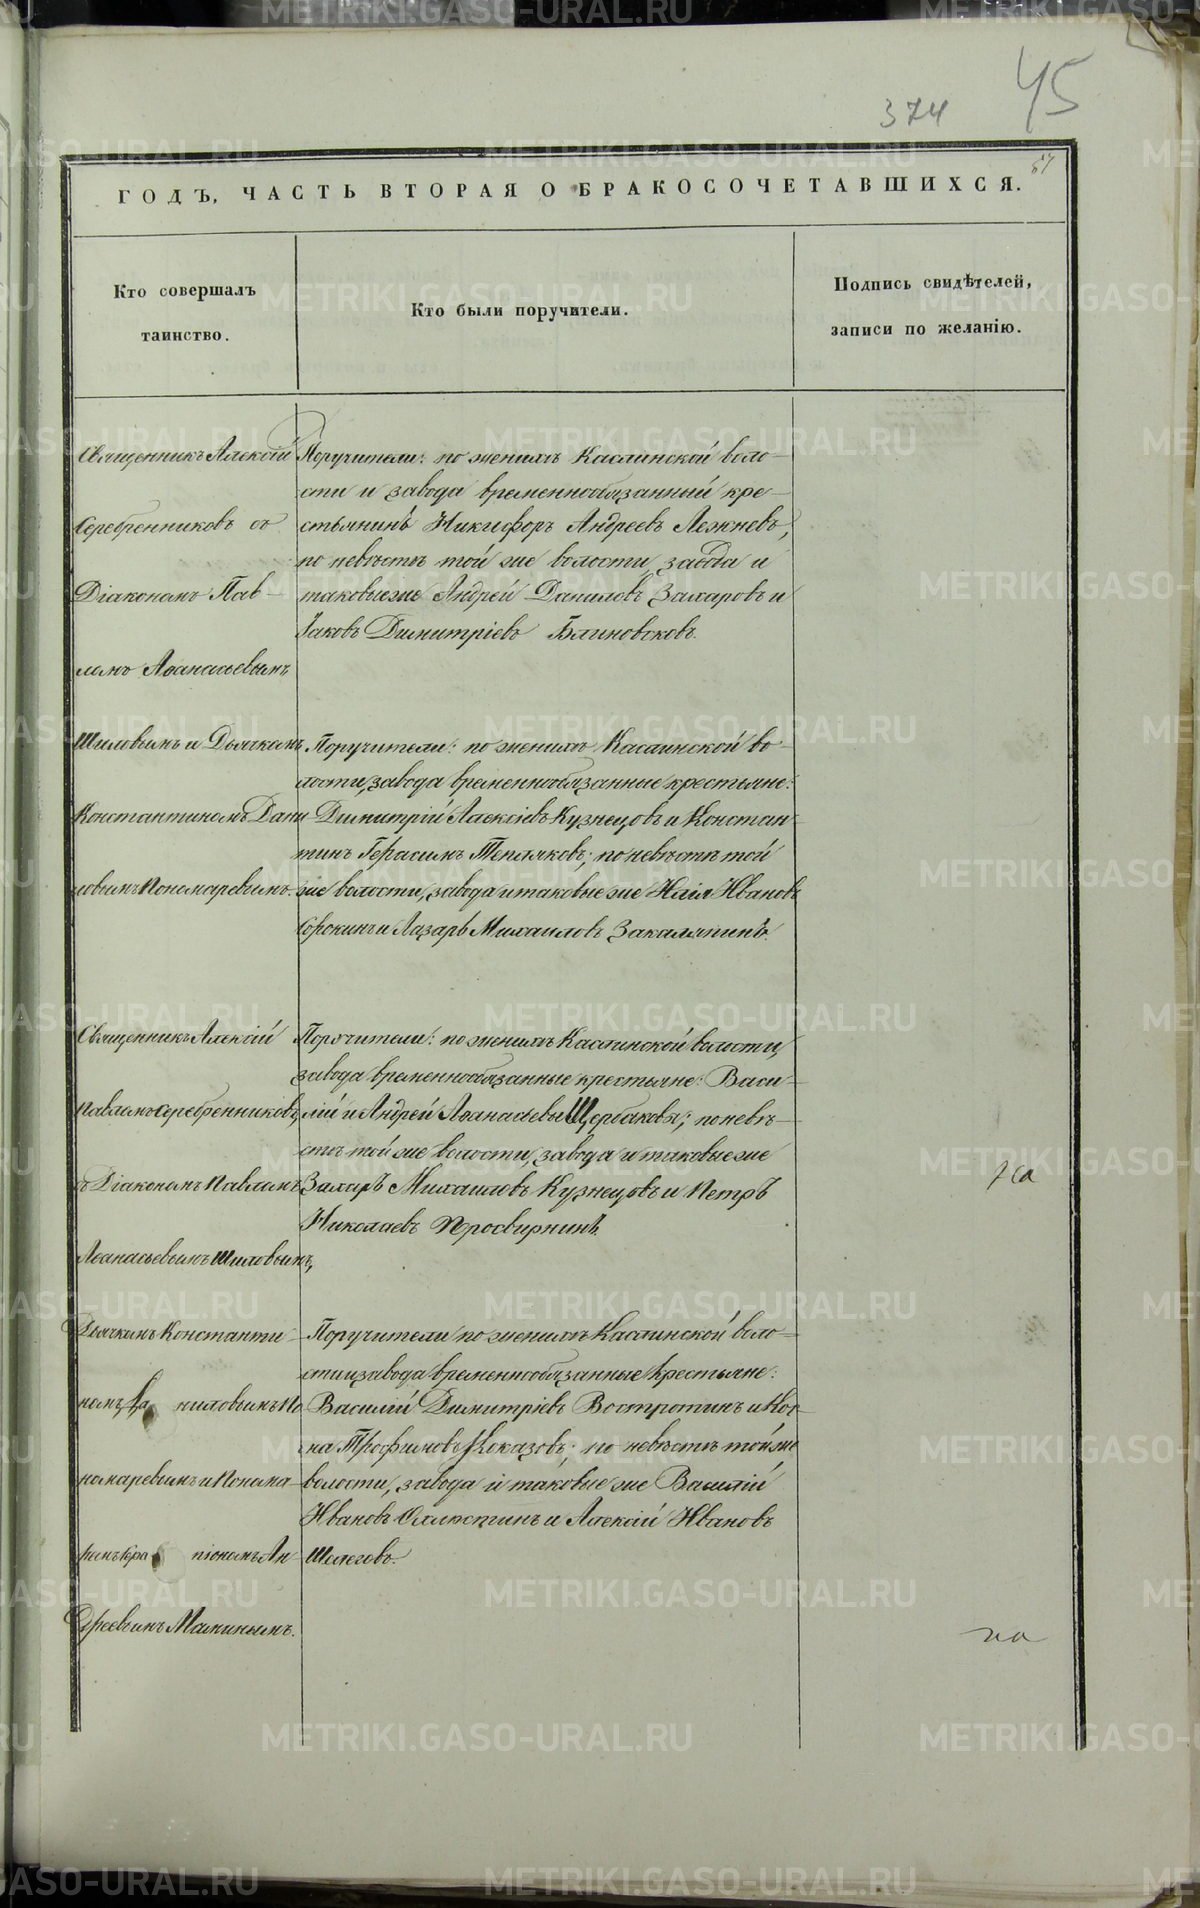 45
374
57
ГОДЪ, ЧАСТЬ ВТОРАЯ О БРАКОСОЧЕТАВШИХСЯ.
Кто совершалъ
таинство.
Кто были поручители.
Подпись свидѣтелей,
записи по желанію.
Священникъ Алексій
Серебренниковъ съ
Діакономъ Пав-
ломъ Аѳанасьевымъ
Шиловымъ и Дьячкомъ
Константиномъ Дани
ловымъ Пономаревымъ.
Поручители: по женихѣ Каслинской воло-
сти и завода временнообязанный кре-
стьянинъ Никифоръ Андреевъ Лежневъ,
по невѣстѣ той же волости, завода и
таковые же Андрей Даниловъ Захаровъ и
Іаковъ Димитріевъ Блиновсковъ.
Поручители: по женихѣ Каслинской во-
лости, завода временнообязанные крестьяне:
Димитрій Алексіевъ Кузнецовъ и Констан-
тинъ Герасимъ Тепляковъ; по невѣстѣ той
же волости, завода и таковые же Илія Ивановъ
Сорокинъ и Лазарь Михаиловъ Закаляпинъ.
Священникъ Алексій
Павломъ Серебренниковъ,
съ Діакономъ Павломъ
Аѳанасьевымъ Шиловымъ,
Дьячкомъ Константи-
номъ Да ниловымъ По
номаревымъ и Понома-
ремъ Кра піономъ Ан-
дреевымъ Маминымъ.
Поручители: по женихѣ Каслинской волости,
завода временнообязанные крестьяне: Васи-
лій и Андрей Аѳанасьевы Щербаковы; по невѣ-
стѣ той же волости, завода и таковые же
Захаръ Михаиловъ Кузнецовъ и Петръ
Николаевъ Просвирнинъ.
Поручители по женихѣ Каслинской воло-
сти и завода временнообязанные крестьяне:
Василій Димитріевъ Востротинъ и Кос-
ма Трофимовъ Коказовъ; по невѣстѣ той же
волости, завода и таковые же Василій
Ивановъ Охлюстинъ и Алексій Ивановъ
Шелеговъ.